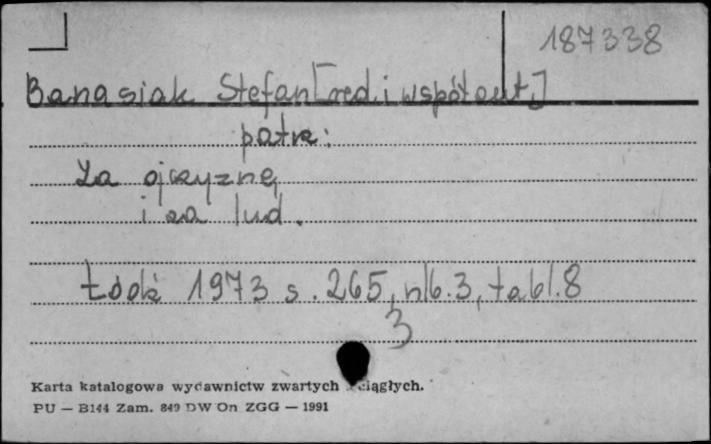 187338
Banasiak Stefan [red. i współaut.]
patrz:
Za ojczyznę
i za lud.
Łódź 1973 s. 265, nlb. 3, tabl. 8
3
Karta katalogowa wydawnictw zwartych ciągłych.
PU — B144 Zam. 849 DW On ZGG — 1991